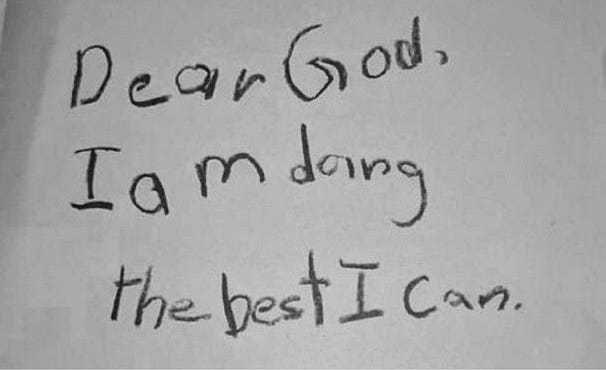 Dear God,
I am doing
the best I can.